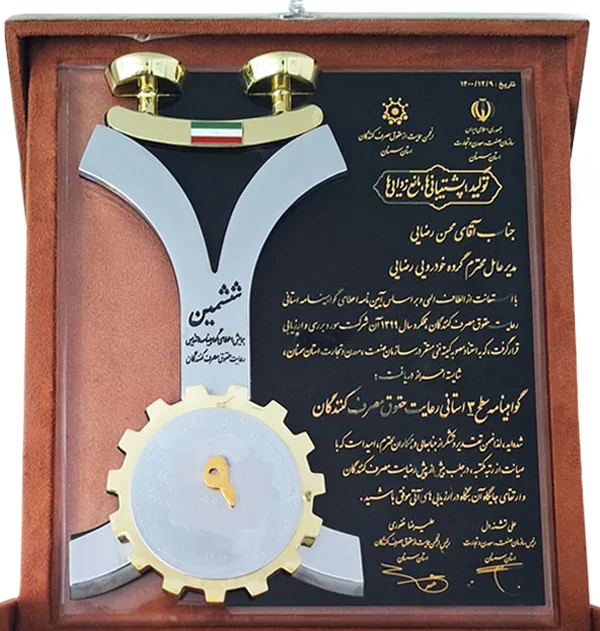 تاریخ : ۱۴۰۰/۱۲/۹
جمهوری اسلامی ایران
سازمان صنعت، معدن و تجارت
استان سمنان
انجمن حمایت از حقوق مصرف کنندگان
استان سمنان
تولید، پشتیبانی‌ها، مانع زدایی‌ها
جناب آقای محسن رضایی
مدیرعامل محترم گروه خودرویی رضایی
با استعانت از الطاف الهی و براساس آیین نامه اعطای گواهینامه استانی
رعایت حقوق مصرف کنندگان، عملکرد سال ۱۳۹۹ آن شرکت مورد بررسی و ارزیابی
قرار گرفت، که به استناد مصوبه کمیته فنی مستقر در سازمان صنعت، معدن و تجارت استان سمنان،
شایسته احراز دریافت :
گواهینامه سطح ۳ استانی رعایت حقوق مصرف کنندگان
شده‌اید، لذا ضمن تقدیر و تشکر از جنابعالی و همکاران محترم، امید است که با
صیانت از رتبه مکتسبه، در جلب بیش از پیش رضایت مصرف کنندگان
و ارتقای جایگاه آن بنگاه در ارزیابی های آتی موفق باشید.
علی تشنه‌دل
رئیس سازمان صنعت، معدن و تجارت
استان سمنان
علیرضا غفوری
رئیس انجمن حمایت از حقوق مصرف کنندگان
استان سمنان
ششمین
همایش اعطای گواهینامه و تندیس
رعایت حقوق مصرف کنندگان